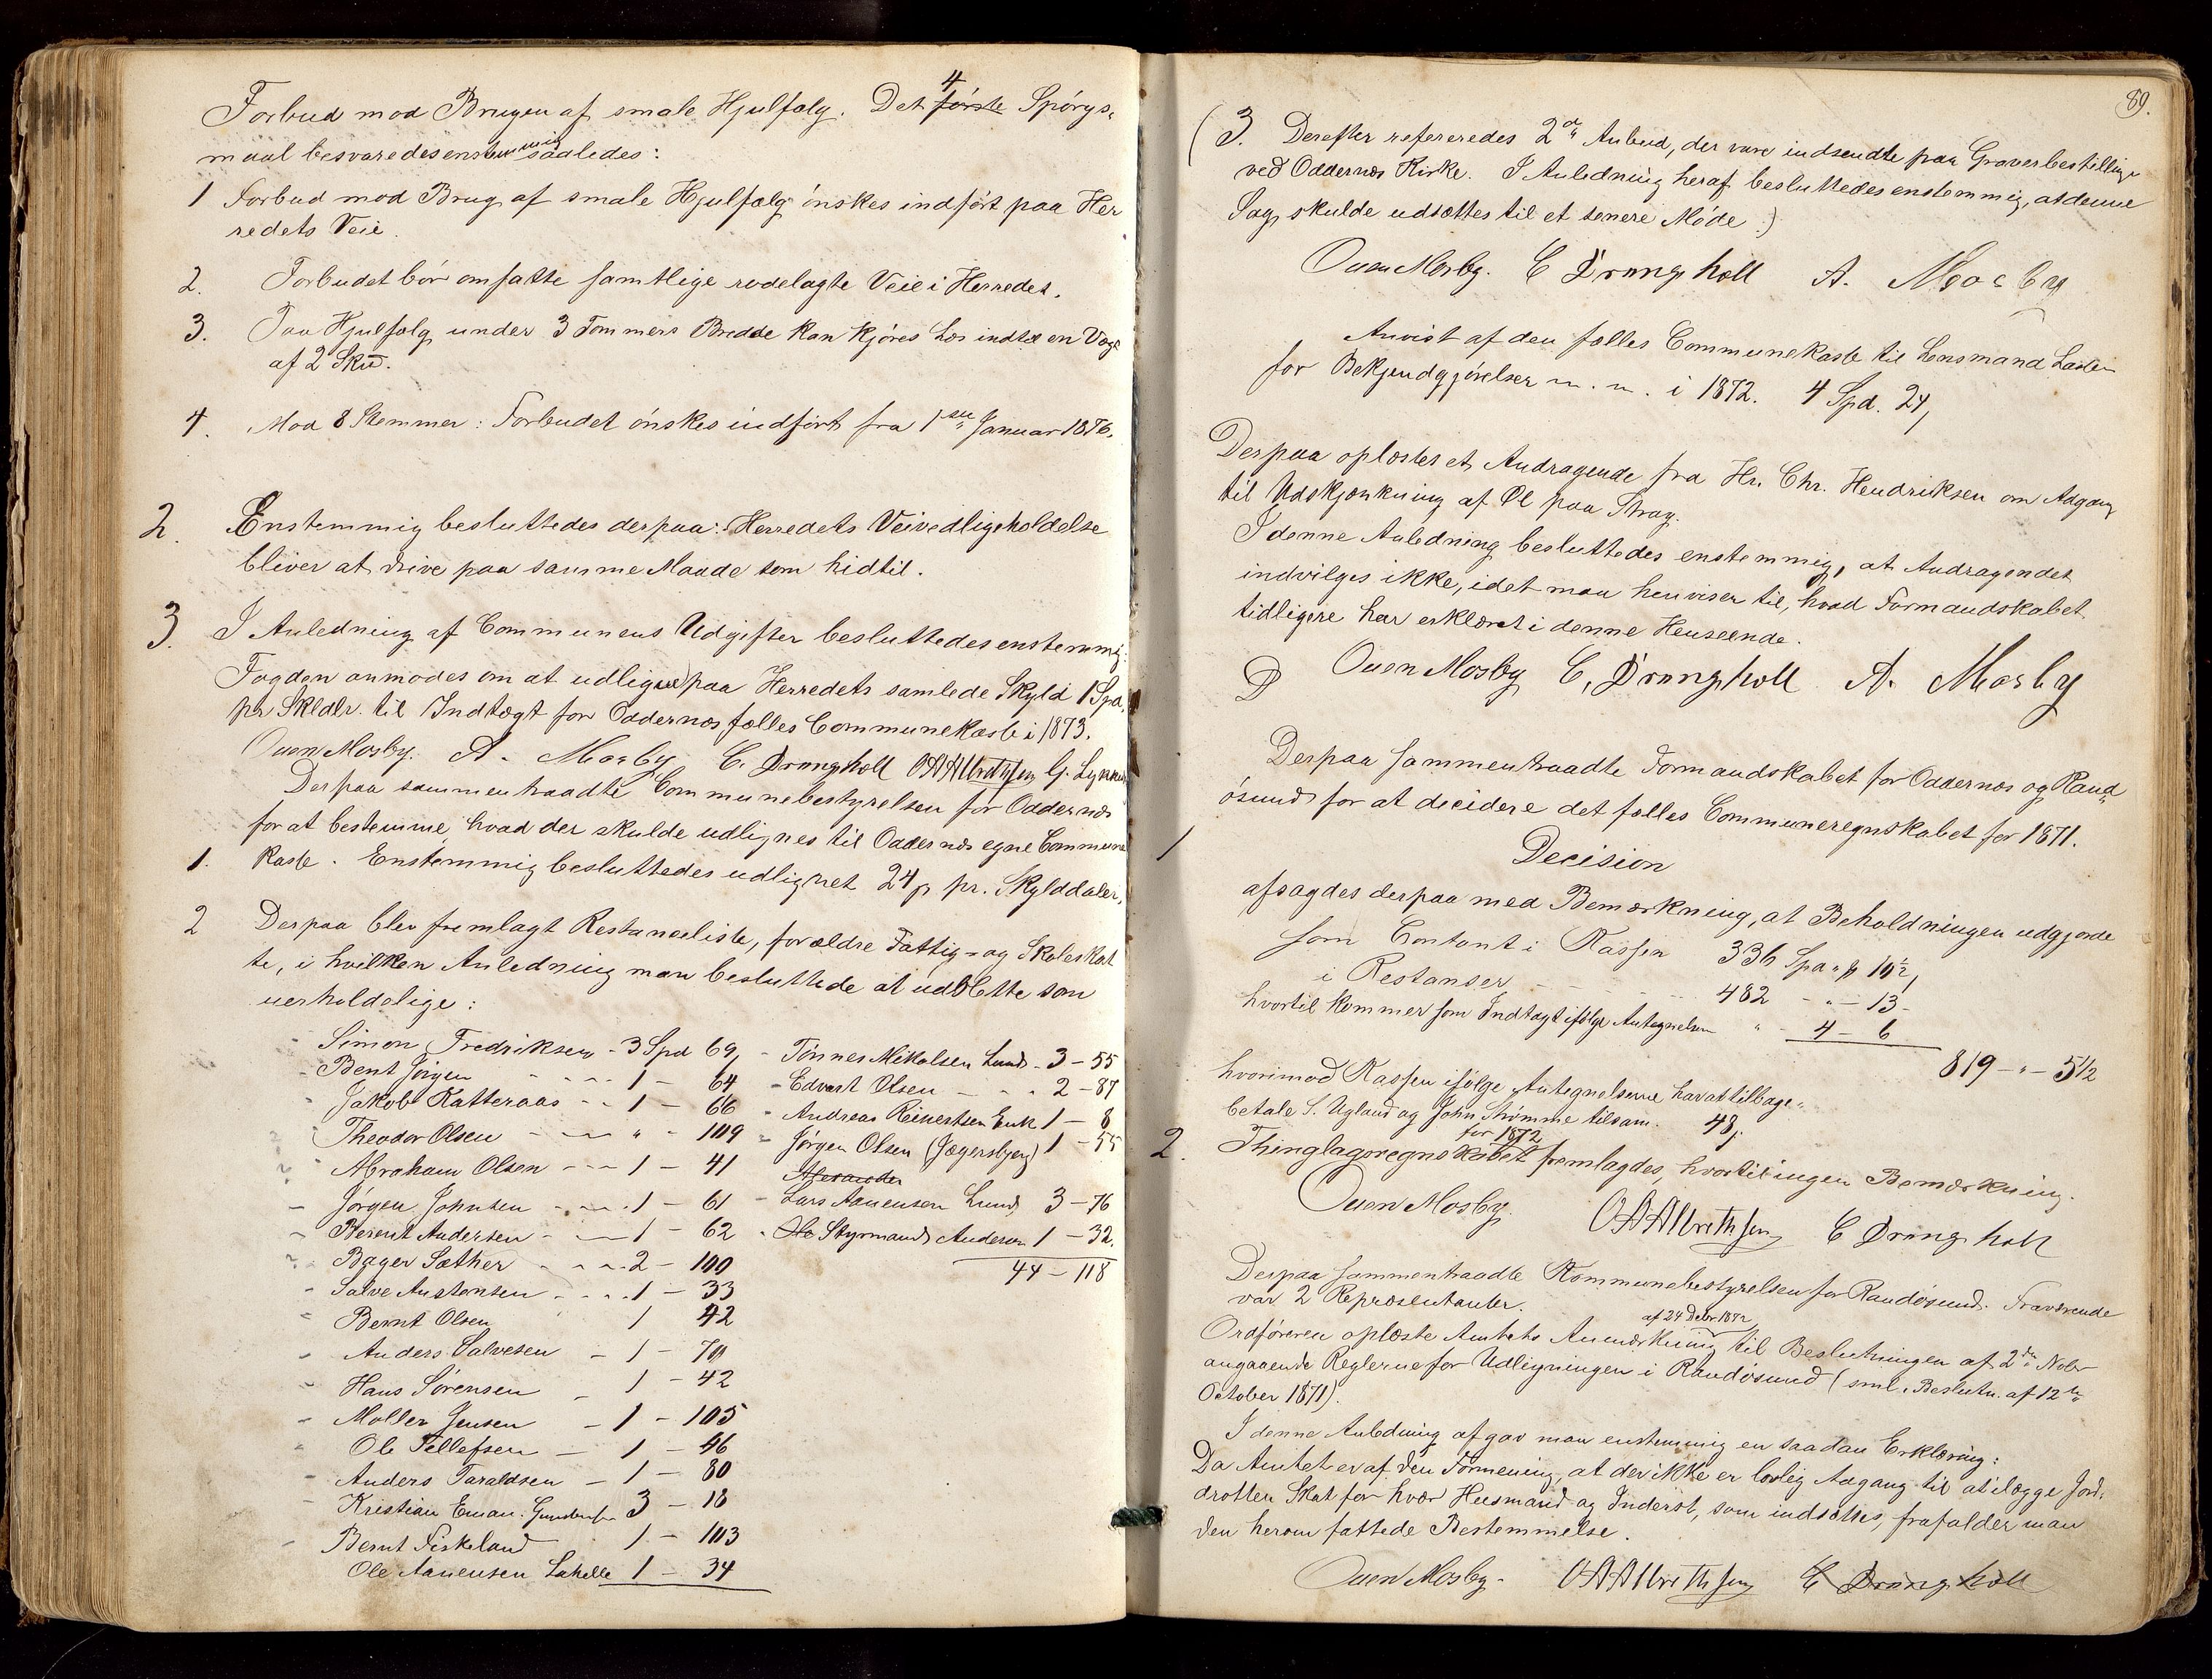 Forbud mod Brugen af smale Hjulfælg. Det første 4 Spörgs-
maal besvaredes enstemmig saaledes:
1 Forbud mod Brug af smale Hjulfælg önskes indfört paa Her
redets Veie.
2. Forbudet bör omfatte samtlige rodelagte Veie i Herredet.
3. Paa Hjulfælg under 3 Tommers Bredde kan kjöres Læs indtil en Vægt
af 2 Sk℔.
4. Mod 8 Stemmer: Forbudet önskes indfört fra 1ste Januar 1876.
2. Enstemmig besluttedes derpaa: Herredets Veivedligeholdelse
bliver at drive paa samme Maade som hidtil.
3. I Anledning af Communens Udgifter besluttedes enstemmig:
Fogden anmodes om at udligne paa Herredets samlede Skyld 1 Spd.
pr Skldlr. til Indtægt for Oddernæs fælles Communekasse i 1873.
Ouen Mosby. A. Mosby C. Drangholt OAAlbrethsen G. Lykke
Derpaa sammentraadte Communebestyrelsen for Oddernæs
for at bestemme hvad der skulde udlignes til Oddernæs egne Commune
1. kasse. Enstemmig besluttedes udlignet 24 β pr. Skylddaler.
2 Derpaa blev fremlagt Restanceliste, for ældre Fattig- og Skoleskat
te, i hvilken Anledning man besluttede at udslette som
uerholdelige:
- Simon Fredriksen - 3 Spd 69, - Tönnes Mikalsen Lund - 3 - 55
- Bent Jörgen - - - 1 - 64 - Edvart Olsen - - 2 - 87
- Jakob Katteraas - - 1 - 66 - Andreas Reinertsen Enk 1 - 8
- Theodor Olsen - - " - 109 - Jörgen Olsen (Jægersbjerg) 1 - 55
- Abraham Olsen - - - 1 - 41 Alexander
- Jörgen Johnsen - - - 1 - 61 - Lars Aanensen Lund 3 - 76
- Berent Andersen - - 1 - 62 - Styrmand Anderson 1 - 32.
- Bager Sæther - - - 2 - 100 44 - 118
- Salve Austensen - - - 1 - 33
- Bernt Olsen 1 42
- Anders Salvesen - 1 - 70
- Hans Sörensen - 1 - 42
- Møller Jensen - 1 - 105
- Ole Tellefsen - 1 - 46
- Anders Taraldsen - 1 - 80
- Kristian Eman. Gundersen 3 - 18
- Bernt Fiskeland 1 - 103
Ole Aanensen Lahelle 1 - 34
89.
(3. Derefter refereredes 2de Anbud, der vare indsendte paa Graverbestillingen
ved Oddernæs Kirke. I Anledning heraf besluttedes enstemmig, at denne
Sag skulde udsættes til et senere Möde.)
Ouen Mosby. C Drangholt A. Mosby
Anvist af den fælles Communekasse til Lensmand Larsen
for Bekjendtgjörelser m. m. i 1872. 4 Spd. 24,
Derpaa oplæstes et Andragende fra Hr. Chr. Hendriksen om Adgang
til Udskjænkning af Øl paa Strag.
I denne Anledning besluttedes enstemmig, at Andragendet
indvilges ikke, idet man henviser til, hvad Formandskabet
tidligere har erklæret i denne Henseende.
Ouen Mosby C. Drangholt A. Mosby
Derpaa sammentraadte Formandskabet for Oddernæs og Rand
ösund for at decidere det fælles Communeregnskabet for 1871.
1 Decision
afsagdes derpaa med Bemærkning, at Beholdningen udgjorde
som Contant i Kassen 336 Spd " β 10½,
i Restanser - - - 482 - " - 13 -
hvortil kommer som Indtægt ifölge Antegnelsen " - 4 - 6
819 - " - 5½
hvorimod Kassen ifölge Antegnelserne har at tilbage-
betale S. Ugland og John Strømme tilsam. 48 β
2. Thinglagsregnskabet for 1872 fremlagdes, hvortil ingen Bemærkning.
Ouen Mosby. OAAlbrethsen C Drangholt
Derpaa sammentraadte Kommunebestyrelsen for Randösund. Fraværende
var 2 Repræsentanter.
Ordföreren oplæste Amtets Anmærkning af 24 Decbr 1872 til Beslutningen af 2den Nobr
angaaende Reglerne for Udligningen i Randösund (sml. Beslutn. af 12te
October 1871).
I denne Anledning afgav man enstemmig en saadan Erklæring:
Da Amtet er af den Formening, at der ikke er lovlig Adgang til at ilægge Jord-
drotten Skat for hver Husmand og Inderst, som indsættes, frafalder man
den herom fattede Bestemmelse.
Ouen Mosby. OAAlbrethsen C Drangholt